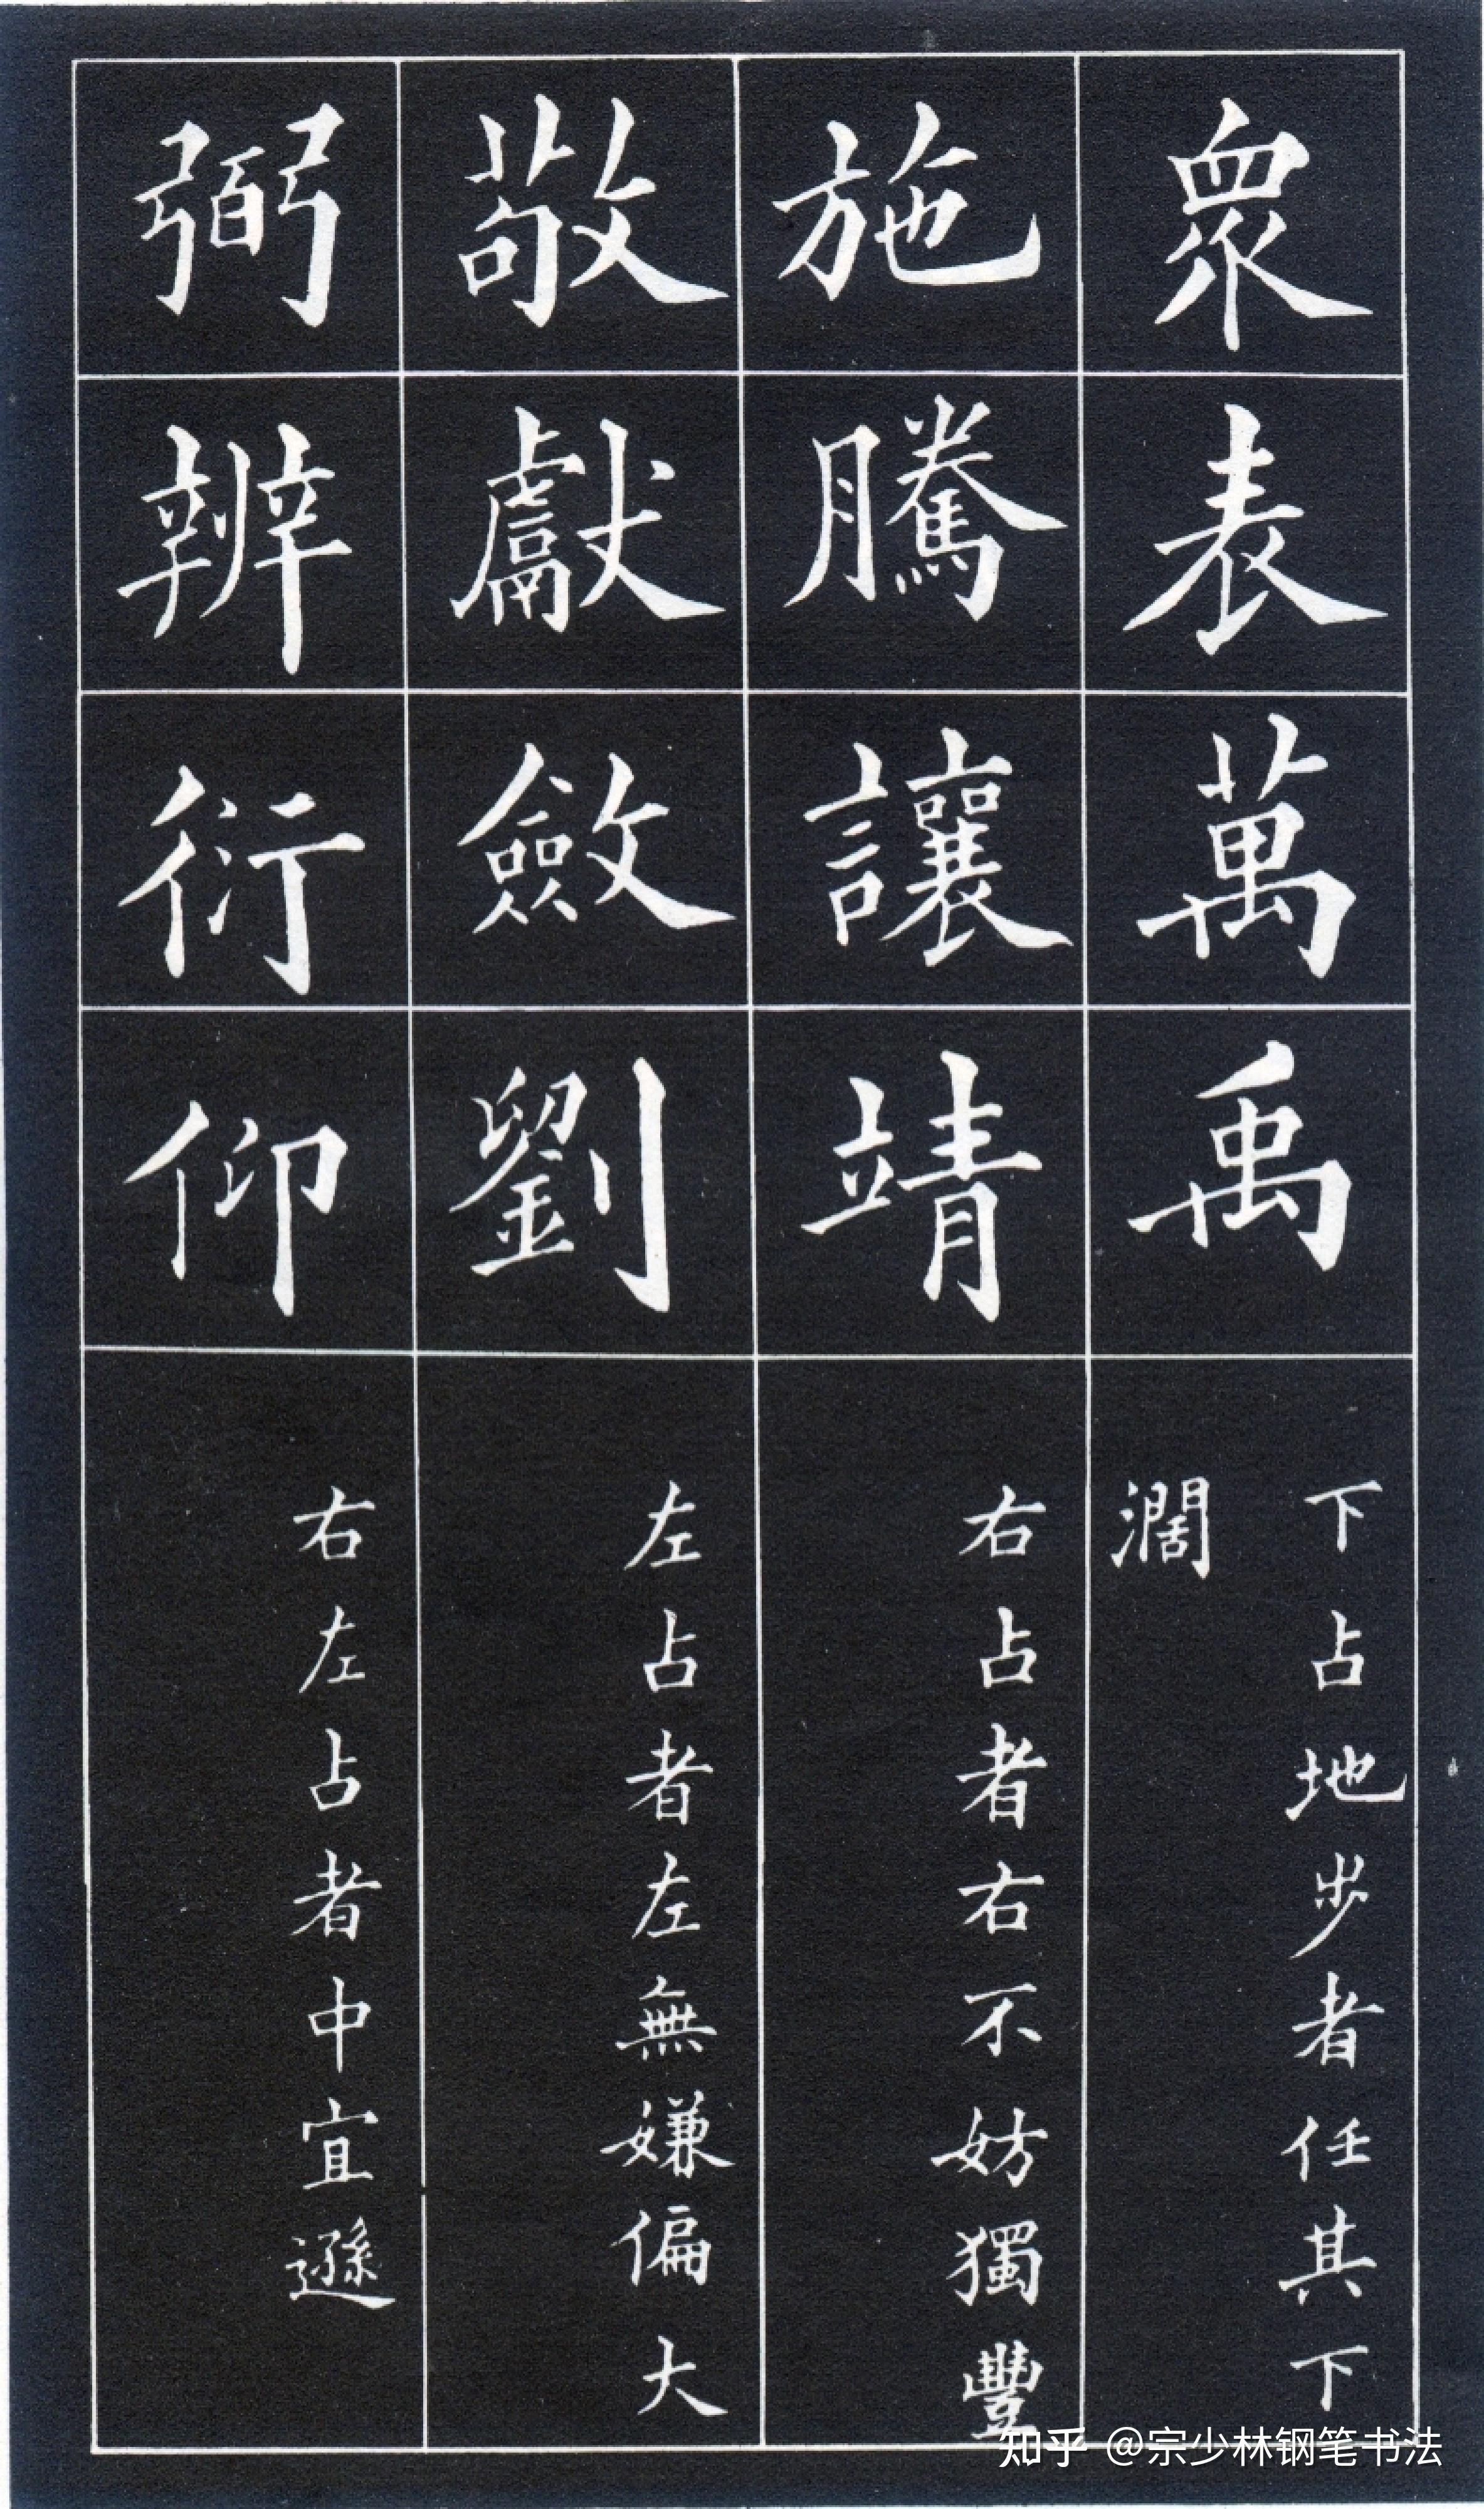 眾表萬禹
下占地步者任其下
濶
施騰讓靖
右占者右不妨獨豐
敬獻斂劉
左占者左無嫌偏大
弼辨衍仰
右左占者中宜遜
知乎 @宗少林钢笔书法